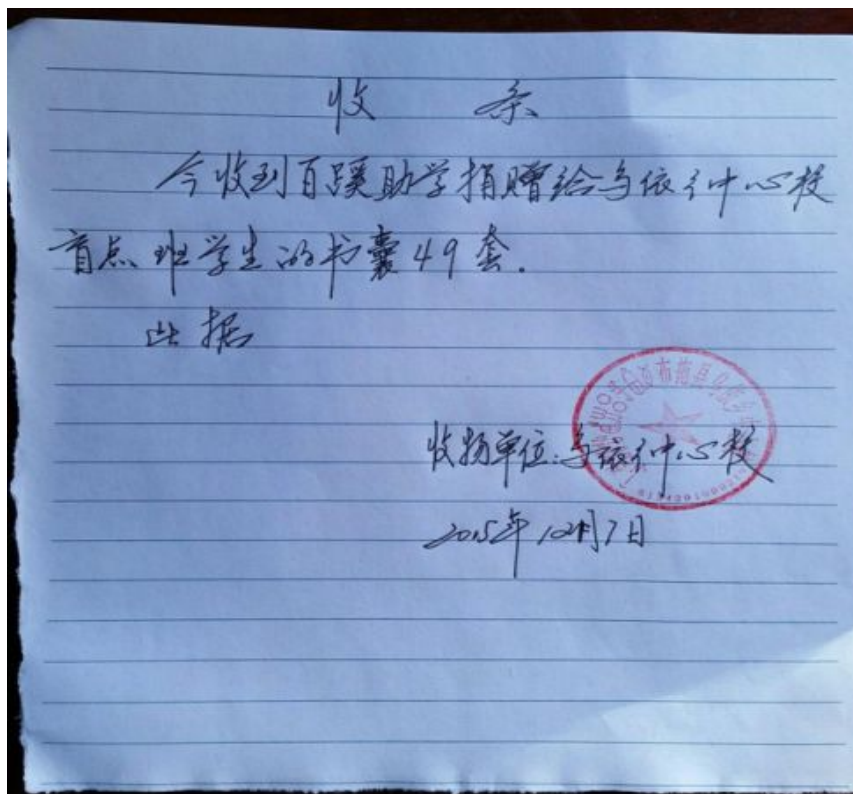 收 条
今收到百蹊助学捐赠给乌依乡中心校
盲点班学生的书囊49套.
此据
布拖县乌依乡
收物单位:乌依乡中心校
2015年12月7日